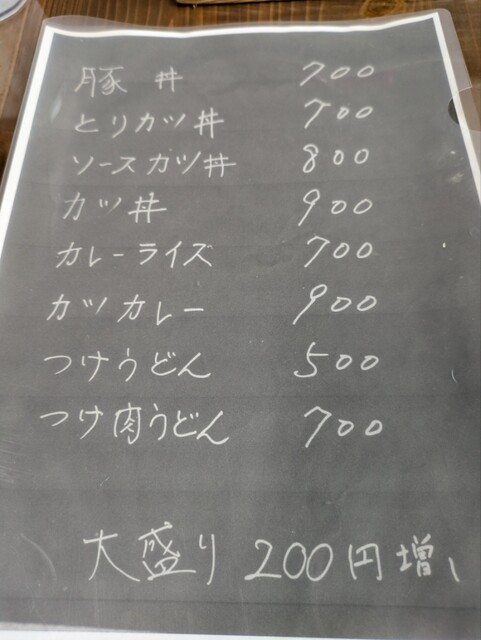 豚丼 700
とりカツ丼 700
ソースカツ丼 800
カツ丼 900
カレーライズ 700
カツカレー 900
つけうどん 500
つけ肉うどん 700
大盛り 200円増し